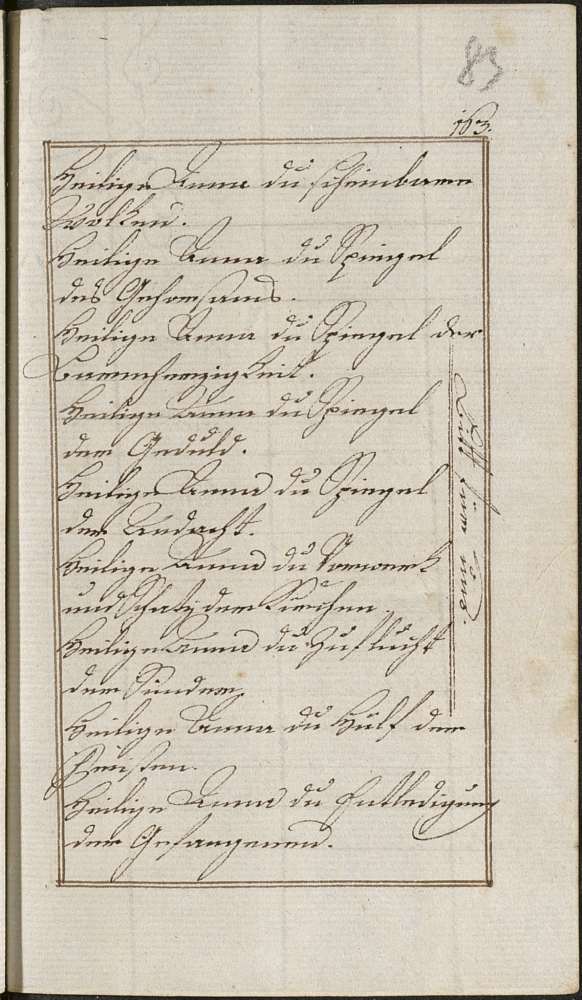 83
163.
Heilige Anna du scheinbaren
Wolken.
Heilige Anna du Spiegel
des Gehorsams.
Heilige Anna du Spiegel der
Barmherzigkeit.
Heilige Anna du Spiegel
der Geduld.
Heilige Anna du Spiegel
der Andacht.
Heilige Anna du Vorwerk
und Schatz der Kirchen.
Heilige Anna du Zuflucht
der Sünder,
Heilige Anna du Hülf der
Christen.
Heilige Anna du Entledigung
der Gefangenen.
Bitt für uns.